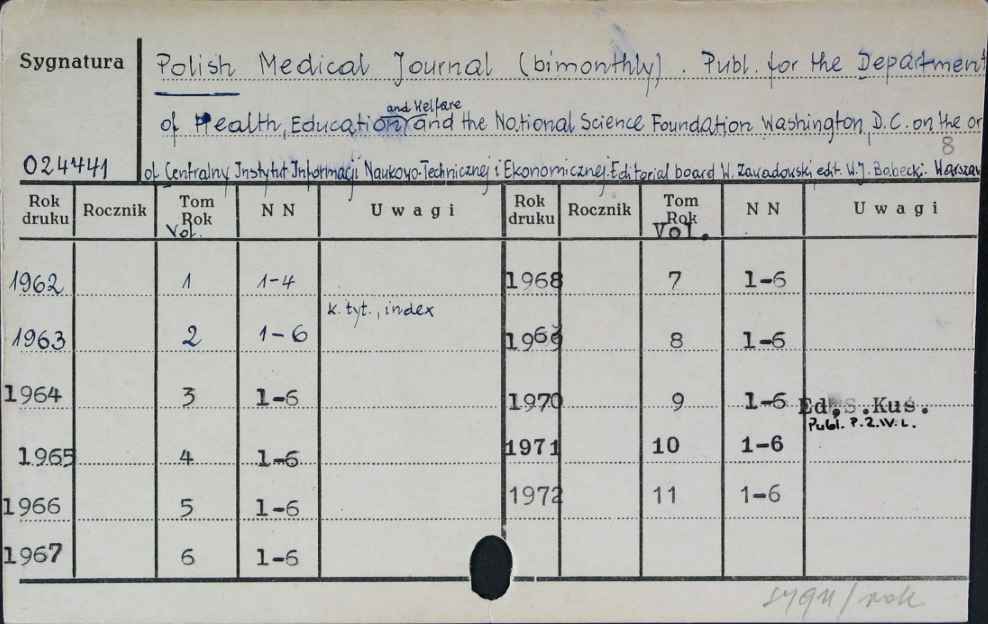 Sygnatura Polish Medical Journal (bimonthly). Publ. for the Department
and Welfare
of Health, Education and the National Science Foundation Washington, D.C. on the or
8
024441 of Centralny Instytut Informacji Naukowo-Technicznej i Ekonomicznej. Editorial board W. Zawadowski edit. W.J. Babecki. Warszaw
Rok druku Rocznik Tom Rok Vol. N N Uwagi Rok druku Rocznik Tom Rok Vol. N N Uwagi
1962 1 1-4 1968 7 1-6
k. tyt., index
1963 2 1-6 1969 8 1-6
1964 3 1-6 1970 9 1-6 Ed. S. Kuś.
Publ. P.Z.W.L.
1965 4 1-6 1971 10 1-6
1966 5 1-6 1972 11 1-6
1967 6 1-6
sygn/rok